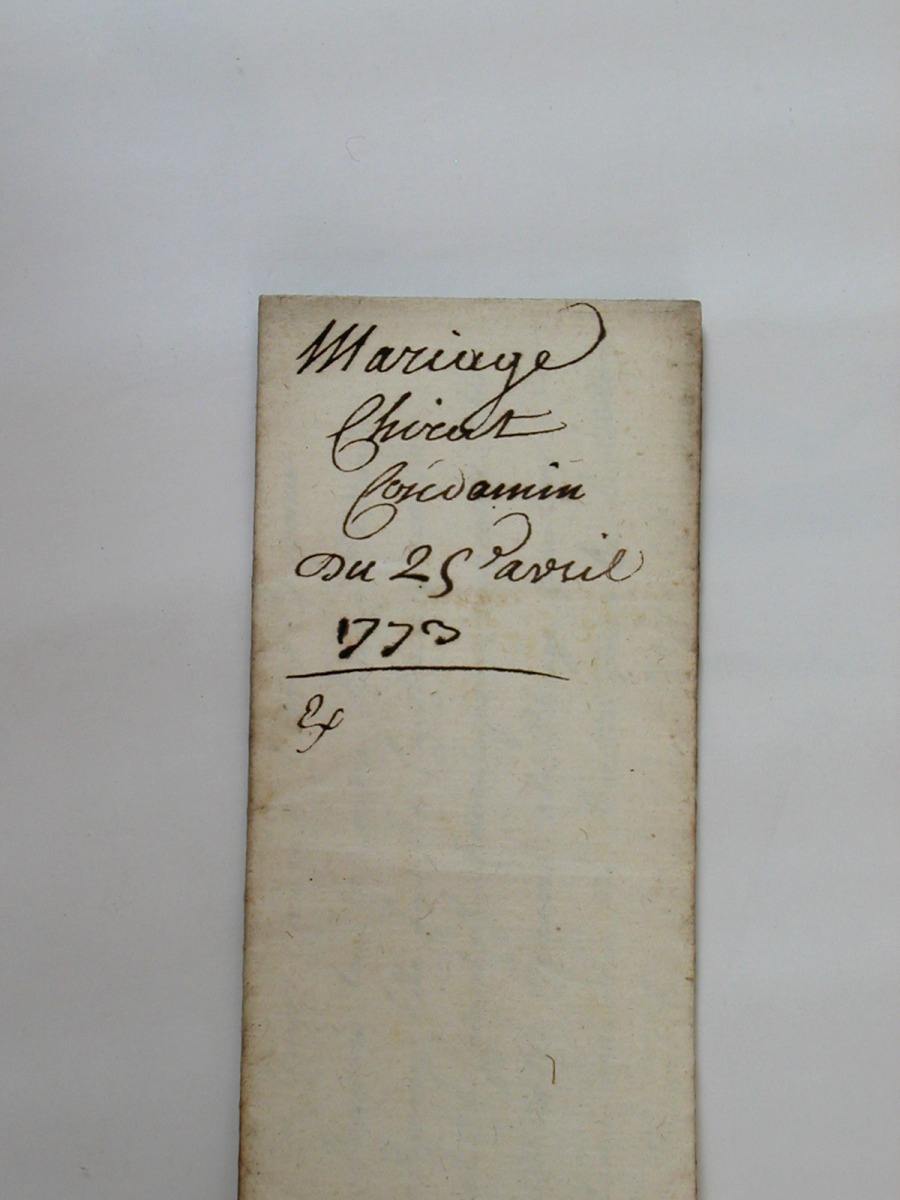 Mariage
Chirat
Condamin
Du 25 avril
1773
Ex